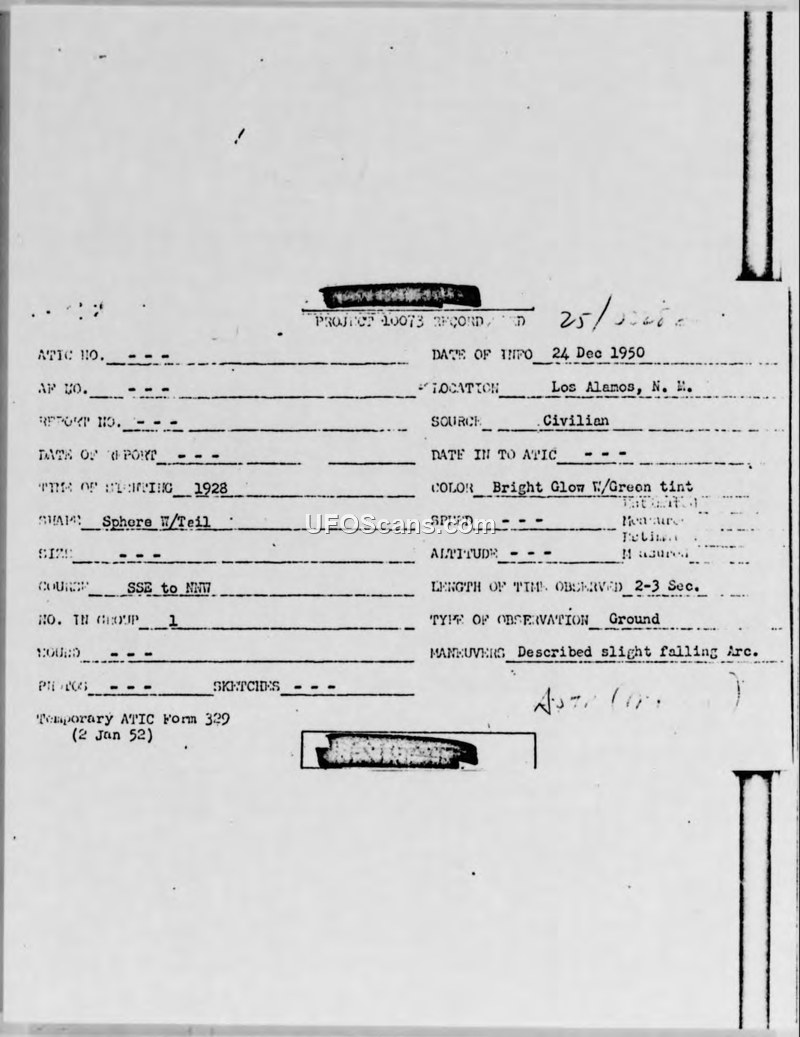 PROJECT 10073 RECORD
25/
ATIC NO. - - -
DATE OF INFO 24 Dec 1950
AF NO. - - -
LOCATION Los Alamos, N. M.
REPORT NO. - - -
SOURCE Civilian
DATE OF REPORT - - -
DATE IN TO ATIC - - -
TIME OF SIGHTING 1928
COLOR Bright Glow W/Green tint
SHAPE Sphere W/Tail
SPEED - - -
SIZE - - -
ALTITUDE - - -
COURSE SSE to NNW
LENGTH OF TIME OBSERVED 2-3 Sec.
NO. IN GROUP 1
TYPE OF OBSERVATION Ground
SOUND - - -
MANEUVERS Described slight falling Arc.
PHOTOS - - - SKETCHES - - -
Temporary ATIC Form 329
(2 Jan 52)
UFOScans.com